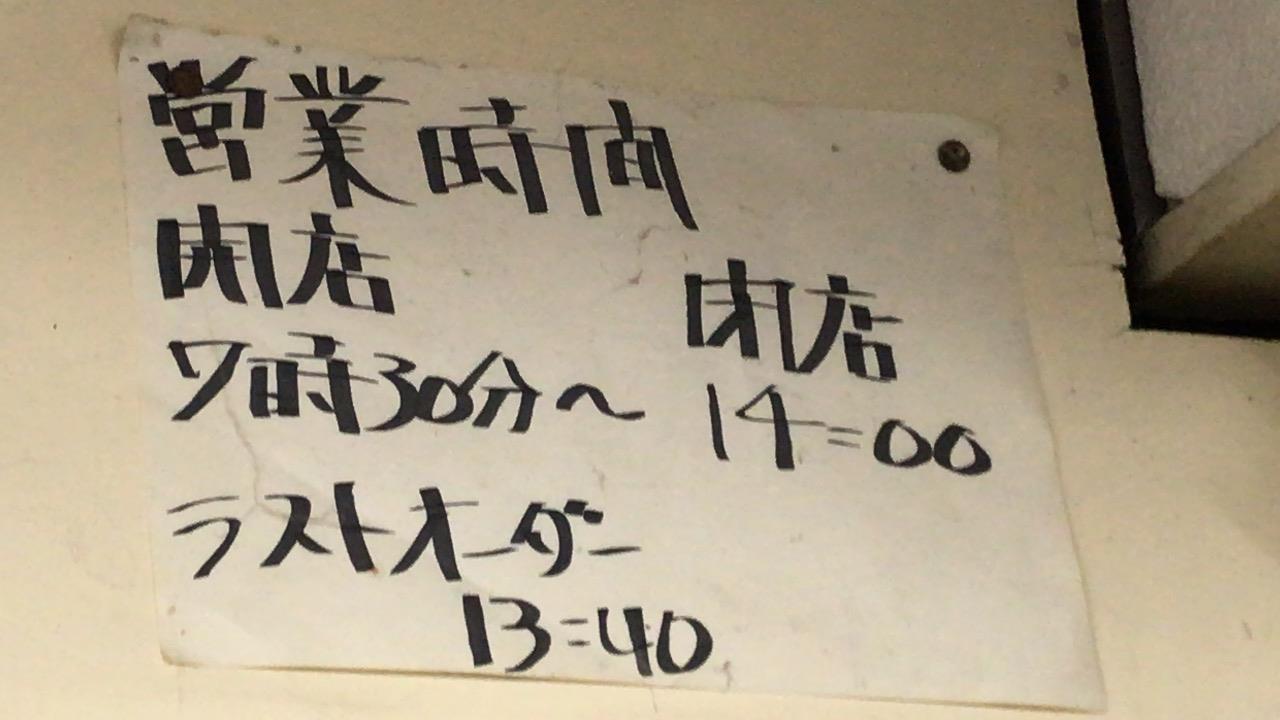 営業時間
開店
7時30分〜
閉店
14=00
ラストオーダー
13=40